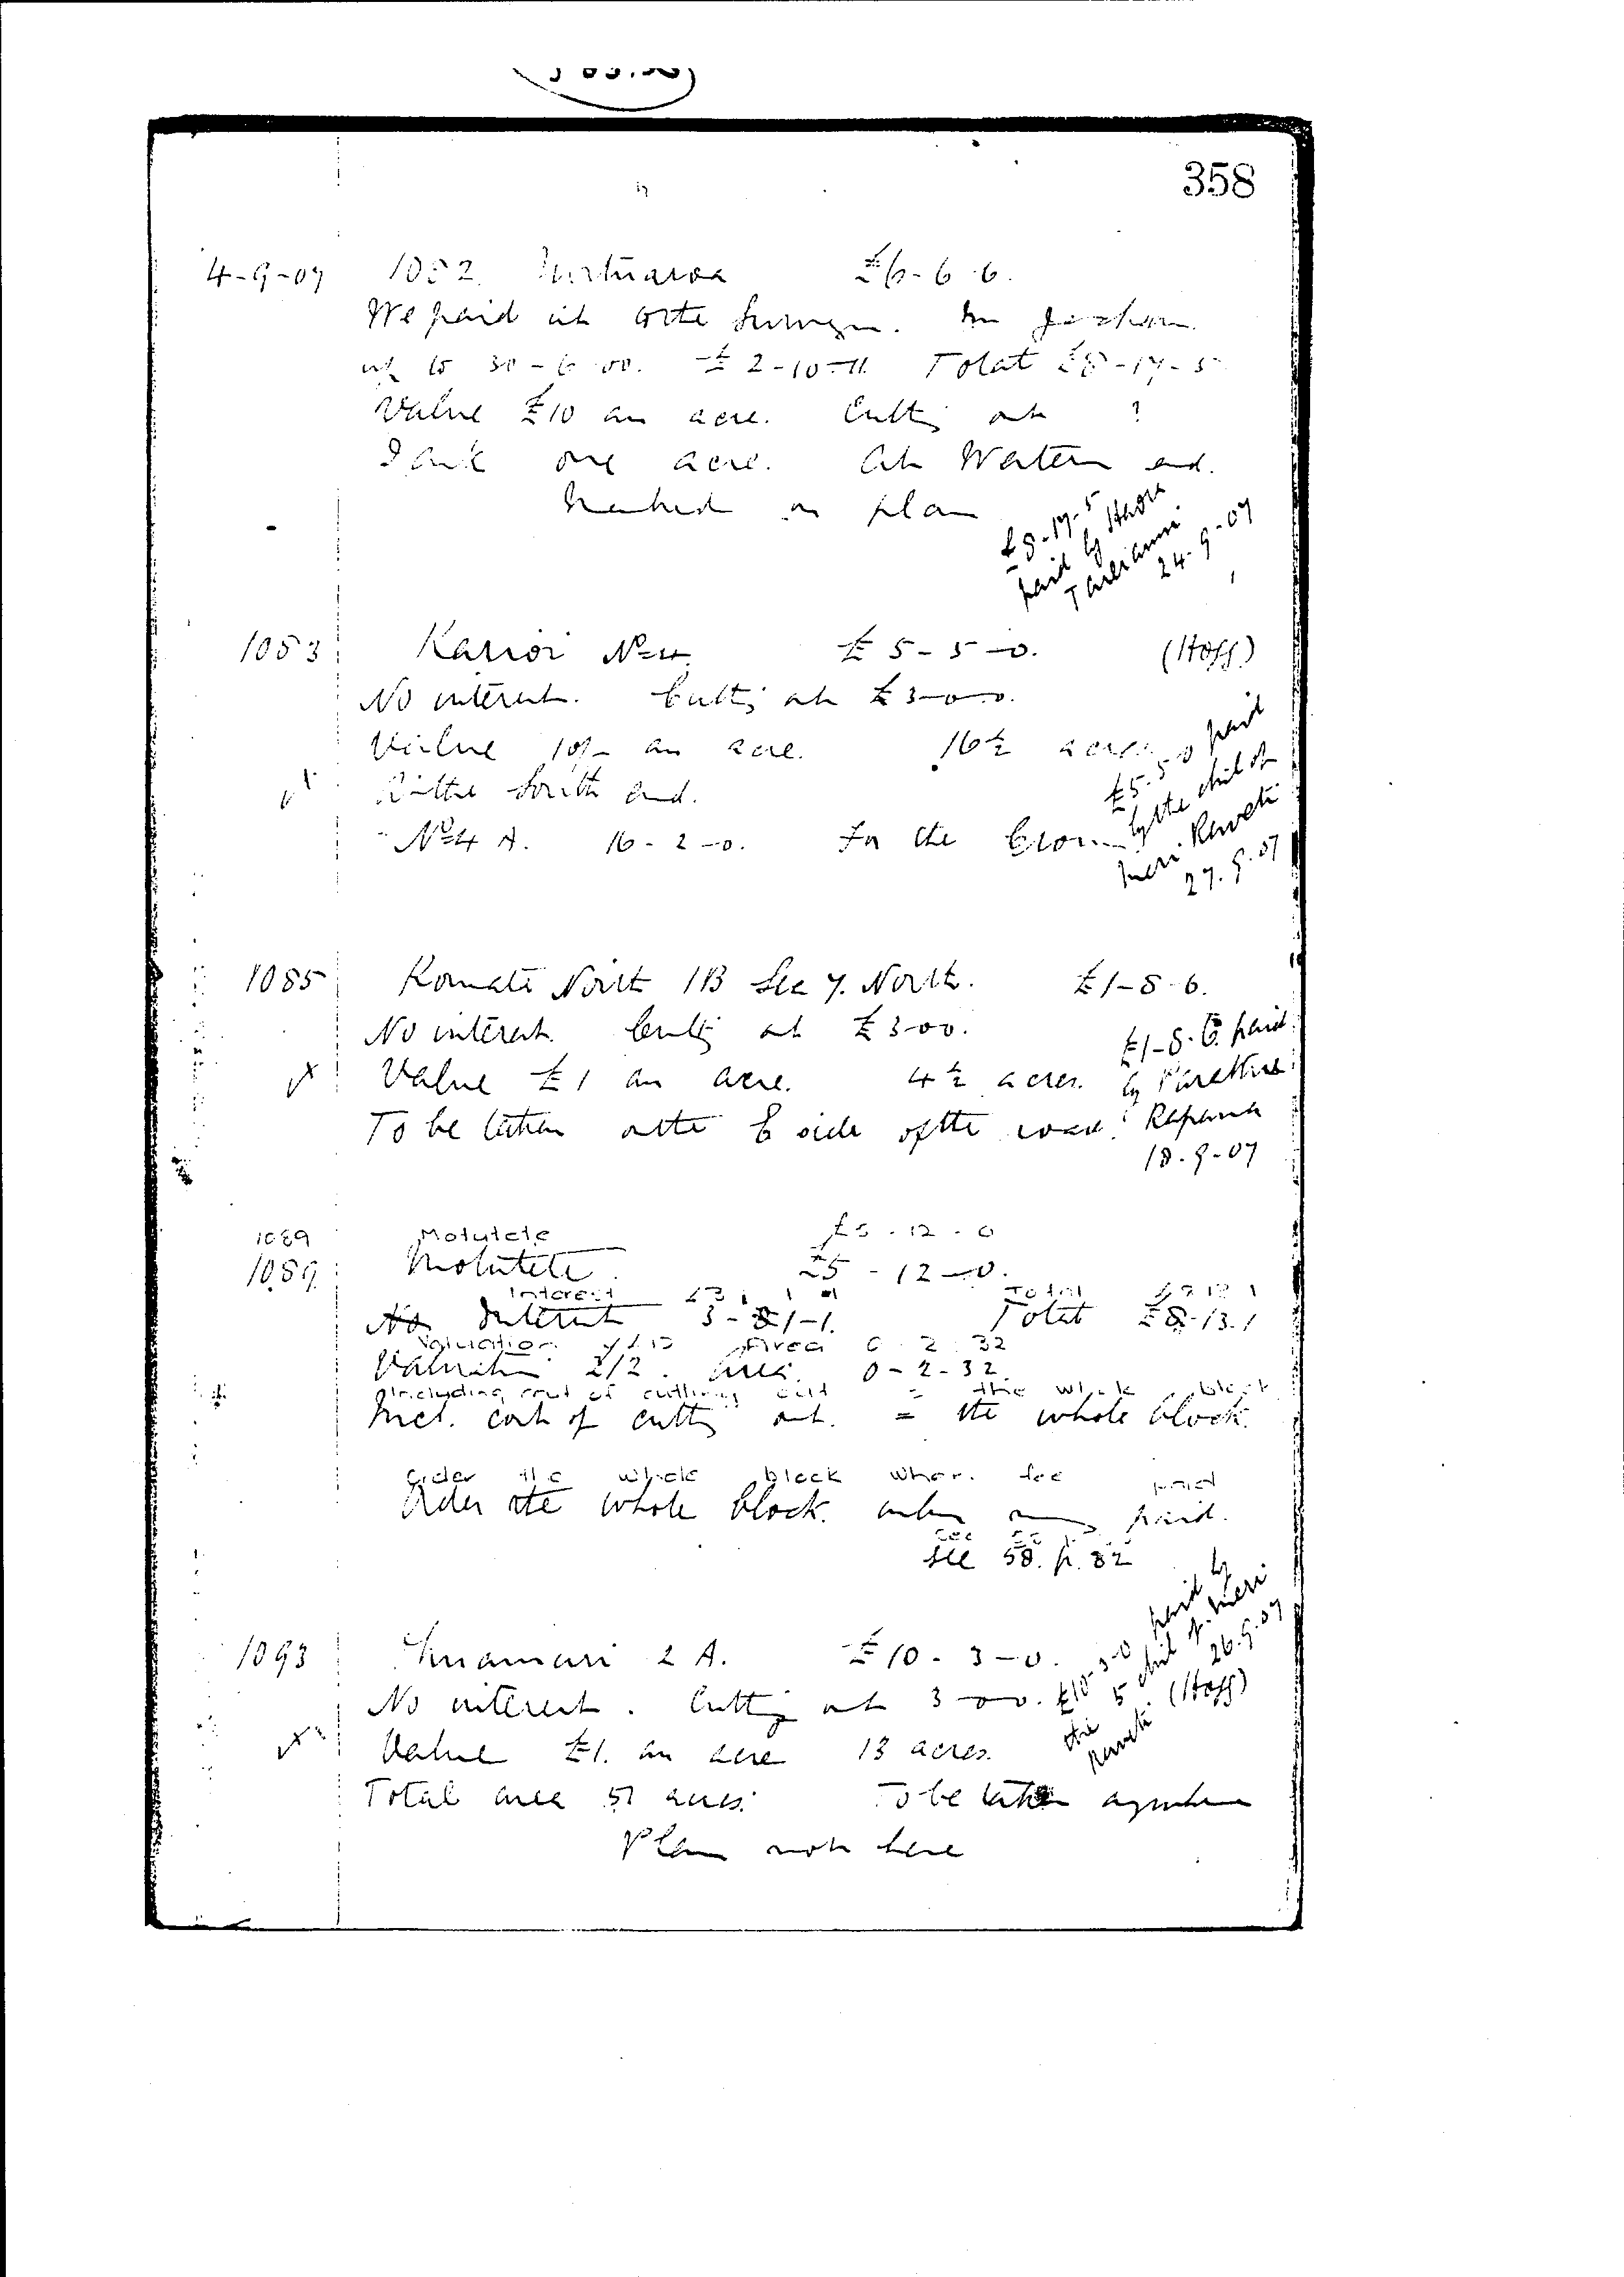 358
4-9-07 1052. £6-6-6.
We paid it to the Surveyor.
up to 30-6-00. £2-10-11. Total £8-17-5
Value £10 an acre. Cutting out ?
one acre. At Western end.
Marked on plan
£8-17-5
paid by
24-9-07
1053 Karioi No 4. £5-5-0. (Hoff)
No interest. Cutting out £3-0-0.
Value 10/- an acre. 16½ acres
£5-5-0 paid
On the South end.
by the chil of
No 4 A. 16-2-0. For the Crown
Meri Reweti
27.9.07
1085 Komata North 1B Sec 7. North. £1-8-6.
No interest. Cutting out £3-0-0.
£1-8-6 paid
Value £1 an acre. 4½ acres. by
To be taken on the E side of the road. Rapana
18-9-07
1089 Motutete £5-12-0
1089 Motutete. £5-12-0.
Interest £3 1 1 Total
No Interest 3-1-1. Total £8-13-1
Valuation Area 0 2 32
Valuation 2/2. Area. 0-2-32
Including cost of cutting out = the whole block
Incl. cost of cutting out. = the whole block.
Order the whole block when fee paid
Order the whole block. when paid.
See 58
See 58. p. 82
1093 2 A. £10-3-0.
£10-3-0 paid by
the 5 chil of Meri
Reweti. 26.9.07
(Hoff)
No interest. Cutting out 3-0-0.
Value £1. an acre 13 acres.
Total area 51 acres. To be taken anywhere
Plan not here